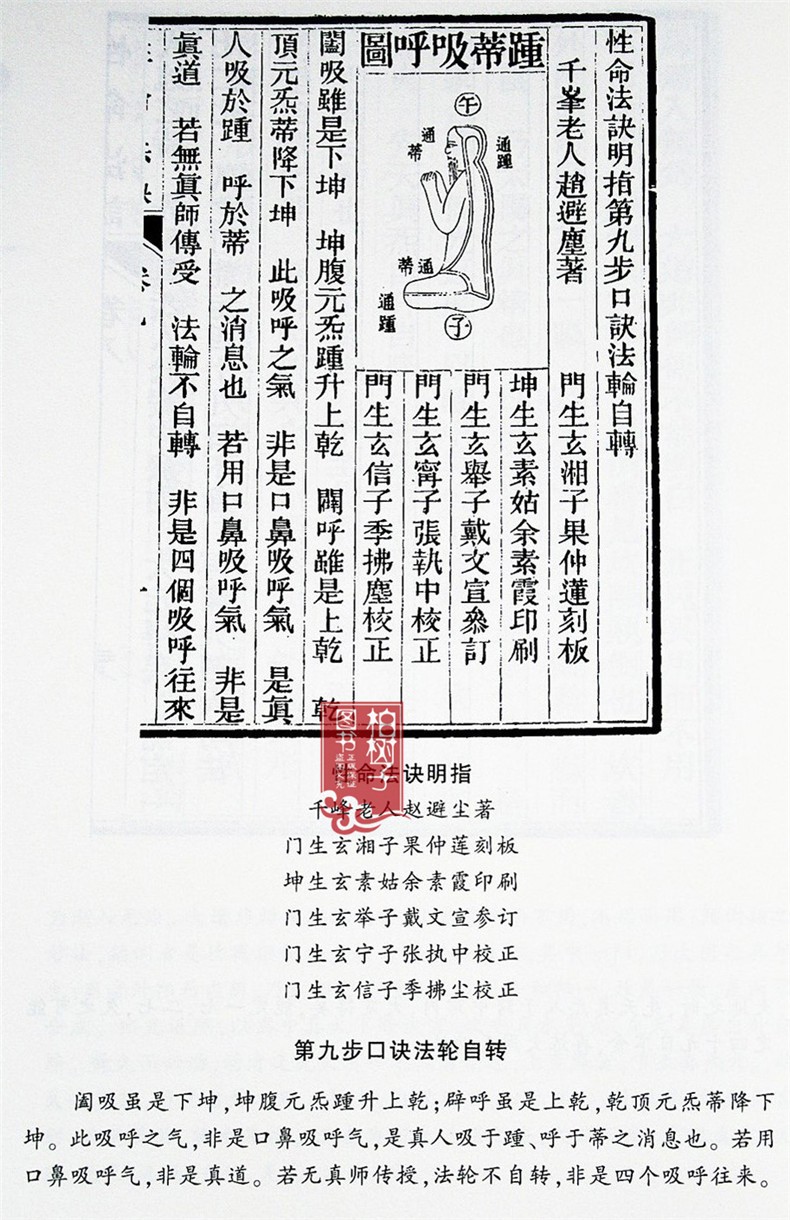 性命法訣明指第九步口訣法輪自轉
千峯老人趙避塵著
門生玄湘子果仲蓮刻板
坤生玄素姑余素霞印刷
門生玄舉子戴文宣叅訂
門生玄甯子張執中校正
門生玄信子季拂塵校正
圖呼吸蒂踵
午
通踵
通蒂
通蒂
通踵
子
闔吸雖是下坤 坤腹元炁踵升上乾 闢呼雖是上乾 乾
頂元炁蒂降下坤 此吸呼之氣 非是口鼻吸呼氣 是眞
人吸於踵 呼於蒂 之消息也 若用口鼻吸呼氣 非是
眞道 若無眞師傳受 法輪不自轉 非是四個吸呼往來
柏树子
图书
正版保证
盗图必究
命法诀明指
千峰老人赵避尘著
门生玄湘子果仲莲刻板
坤生玄素姑余素霞印刷
门生玄举子戴文宣参订
门生玄宁子张执中校正
门生玄信子季拂尘校正
第九步口诀法轮自转
阖吸虽是下坤,坤腹元炁踵升上乾;辟呼虽是上乾,乾顶元炁蒂降下
坤。此吸呼之气,非是口鼻吸呼气,是真人吸于踵、呼于蒂之消息也。若用
口鼻吸呼气,非是真道。若无真师传授,法轮不自转,非是四个吸呼往来。